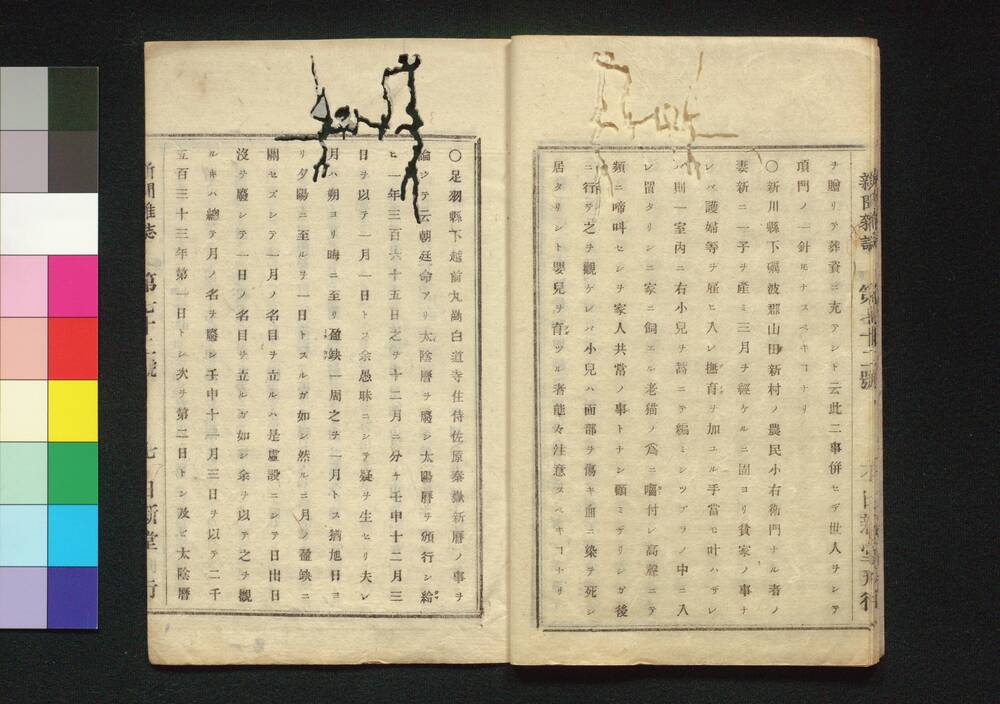 ヲ贈リテ葬資ニ充アント云此二事併セデ世人ヲシテ
頂門ノ一針ルナスベキコナリ
〇新川縣下礪波郡山田新村ノ農民小右衞門ナル者ノ
妻新ニ一子ヲ產ミ三月ヲ經ケルニ固ヨリ貧家ノ事ナ
レバ護婦等ヲ雇ヒ入レ撫育ヲ加エル手當モ叶ハザレ
バ則一室內ニ右小兒ヲ藁ニテ編ミシツブラノ中ニ入
レ留タリシニ家ニ飼エル老猫ノ爲ニ囓付レ高聲ニテ
頻ニ啼叫セシヲ家人共常ノ事トナシ顧ミザリシガ後
ニ行テ之ヲ觀ケレバ小兒ハ面部ヲ傷キ血ニ染ヲ死シ
居タリシト嬰兒ヲ育ツル者能々注意スベキコナリ
〇足羽縣下越前丸岡白道寺住侍佐原秦嶽新曆ノ事ヲ
論シテ云朝廷命アリ太陰曆ヲ廢シ太陽曆ヲ頒行シ給
ヒ一年三百六十五日之ヲ十二月ニ分ケ壬申十二月三
日ヲ以テ一月一日トス余愚昧ニシテ疑ヲ生セリ夫レ
月ハ朔ヨリ晦ニ至リ盈缺一周之ヲ一月トス猶旭日ヨ
リ夕陽ニ至ルヲ一日トスルガ如シ然ルニ月ノ盈缺ニ
關セズシテ一月ノ名目ヲ立ルハ是虛設ニシテ日出日
沒ヲ廢シテ一日ノ名目ヲ立ルガ如シ余ヲ以テ之ヲ觀
ルキハ總テ月ノ名ヲ廢シ壬申十一月三日ヲ以テ二千
五百三十三年第一日トシ次ヲ第二日トシ及ビ太陰曆
新聞雜誌
日新堂